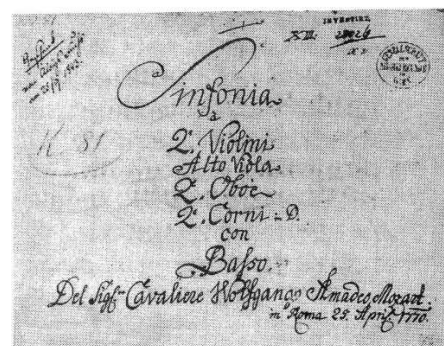 INVENTIRT.
XIII.
K. 81
Sinfonia
a
2. Violini
Alto Viola
2. Oboe
2. Corni = D.
con
Basso.
Del Sigre Cavaliere Wolfgango Amadeo Mozart.
in Roma 25. April 1770.